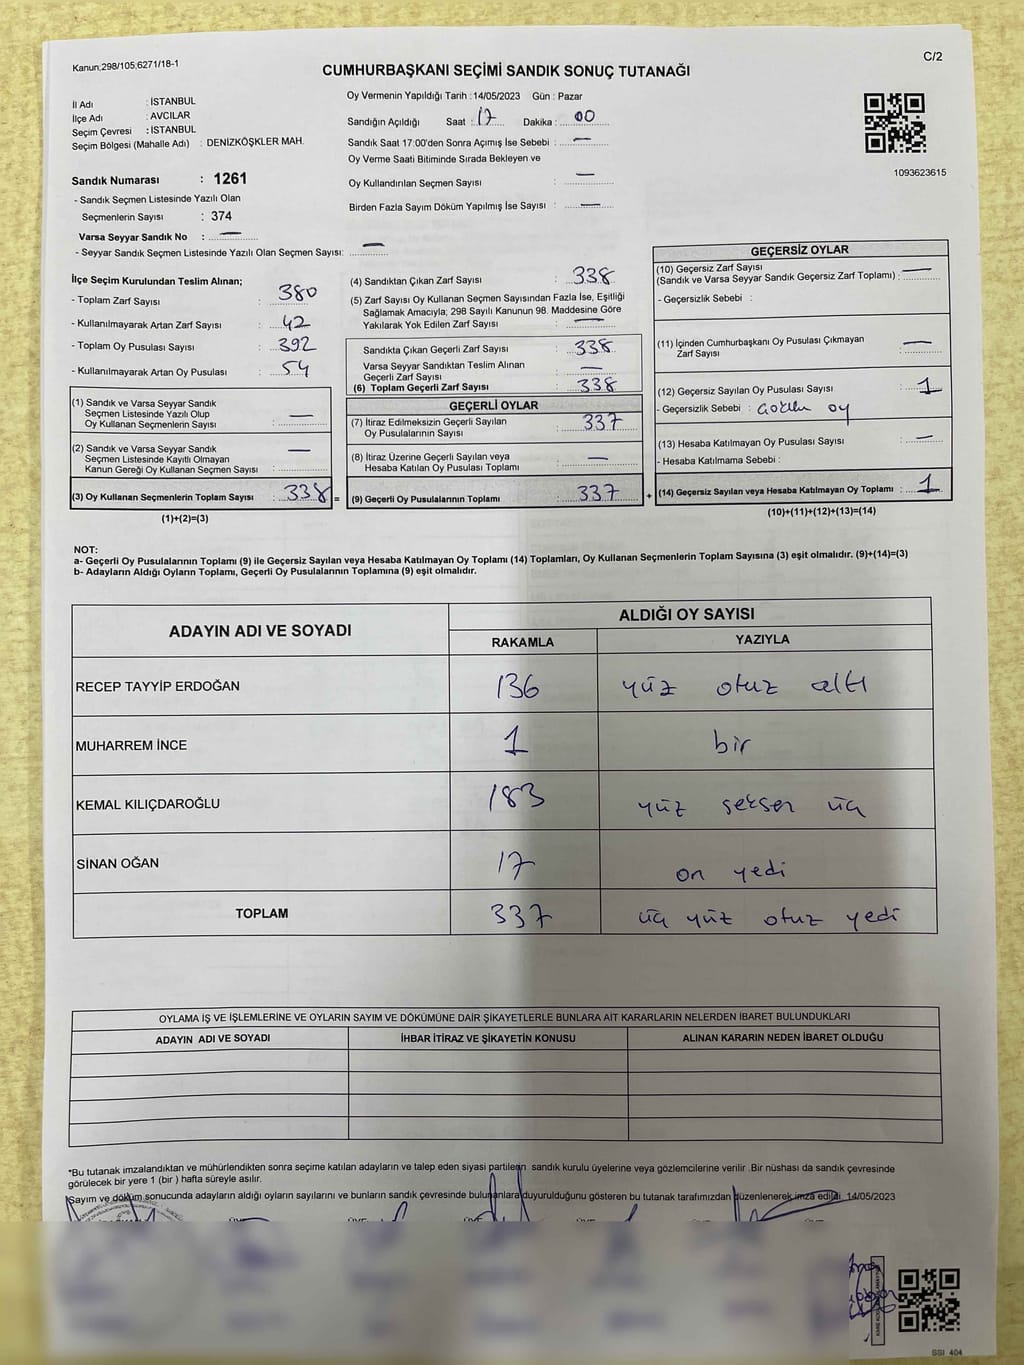 Kanun;298/105;6271/18-1
C/2
CUMHURBAŞKANI SEÇİMİ SANDIK SONUÇ TUTANAĞI
İl Adı : İSTANBUL
İlçe Adı : AVCILAR
Seçim Çevresi : İSTANBUL
Seçim Bölgesi (Mahalle Adı) : DENİZKÖŞKLER MAH.
Sandık Numarası : 1261
- Sandık Seçmen Listesinde Yazılı Olan
Seçmenlerin Sayısı : 374
Varsa Seyyar Sandık No : —
- Seyyar Sandık Seçmen Listesinde Yazılı Olan Seçmen Sayısı: —
Oy Vermenin Yapıldığı Tarih : 14/05/2023 Gün : Pazar
Sandığın Açıldığı Saat : 17 Dakika : 00
Sandık Saat 17:00'den Sonra Açımış İse Sebebi : —
Oy Verme Saati Bitiminde Sırada Bekleyen ve
Oy Kullandırılan Seçmen Sayısı : —
Birden Fazla Sayım Döküm Yapılmış İse Sayısı : —
1093623615
İlçe Seçim Kurulundan Teslim Alınan;
- Toplam Zarf Sayısı : 380
- Kullanılmayarak Artan Zarf Sayısı : 42
- Toplam Oy Pusulası Sayısı : 392
- Kullanılmayarak Artan Oy Pusulası : 54
(1) Sandık ve Varsa Seyyar Sandık
Seçmen Listesinde Yazılı Olup
Oy Kullanan Seçmenlerin Sayısı : —
(2) Sandık ve Varsa Seyyar Sandık
Seçmen Listesinde Kayıtlı Olmayan
Kanun Gereği Oy Kullanan Seçmen Sayısı : —
(3) Oy Kullanan Seçmenlerin Toplam Sayısı : 338 =
(1)+(2)=(3)
(4) Sandıktan Çıkan Zarf Sayısı : 338
(5) Zarf Sayısı Oy Kullanan Seçmen Sayısından Fazla İse, Eşitliği
Sağlamak Amacıyla; 298 Sayılı Kanunun 98. Maddesine Göre
Yakılarak Yok Edilen Zarf Sayısı : —
Sandıkta Çıkan Geçerli Zarf Sayısı : 338
Varsa Seyyar Sandıktan Teslim Alınan
Geçerli Zarf Sayısı : —
(6) Toplam Geçerli Zarf Sayısı : 338
GEÇERLİ OYLAR
(7) İtiraz Edilmeksizin Geçerli Sayılan
Oy Pusulalarının Sayısı : 337
(8) İtiraz Üzerine Geçerli Sayılan veya
Hesaba Katılan Oy Pusulası Toplamı : —
(9) Geçerli Oy Pusulalarının Toplamı : 337 +
GEÇERSİZ OYLAR
(10) Geçersiz Zarf Sayısı
(Sandık ve Varsa Seyyar Sandık Geçersiz Zarf Toplamı) : —
- Geçersizlik Sebebi :
(11) İçinden Cumhurbaşkanı Oy Pusulası Çıkmayan
Zarf Sayısı : —
(12) Geçersiz Sayılan Oy Pusulası Sayısı : 1
- Geçersizlik Sebebi : oy
(13) Hesaba Katılmayan Oy Pusulası Sayısı : —
- Hesaba Katılmama Sebebi :
(14) Geçersiz Sayılan veya Hesaba Katılmayan Oy Toplamı : 1
(10)+(11)+(12)+(13)=(14)
NOT:
a- Geçerli Oy Pusulalarının Toplamı (9) ile Geçersiz Sayılan veya Hesaba Katılmayan Oy Toplamı (14) Toplamları, Oy Kullanan Seçmenlerin Toplam Sayısına (3) eşit olmalıdır. (9)+(14)=(3)
b- Adayların Aldığı Oyların Toplamı, Geçerli Oy Pusulalarının Toplamına (9) eşit olmalıdır.
ADAYIN ADI VE SOYADI ALDIĞI OY SAYISI
RAKAMLA YAZIYLA
RECEP TAYYİP ERDOĞAN 136 yüz otuz altı
MUHARREM İNCE 1 bir
KEMAL KILIÇDAROĞLU 183 yüz seksen üç
SİNAN OĞAN 17 on yedi
TOPLAM 337 üç yüz otuz yedi
OYLAMA İŞ VE İŞLEMLERİNE VE OYLARIN SAYIM VE DÖKÜMÜNE DAİR ŞİKAYETLERLE BUNLARA AİT KARARLARIN NELERDEN İBARET BULUNDUKLARI
ADAYIN ADI VE SOYADI İHBAR İTİRAZ VE ŞİKAYETİN KONUSU ALINAN KARARIN NEDEN İBARET OLDUĞU
*Bu tutanak imzalandıktan ve mühürlendikten sonra seçime katılan adayların ve talep eden siyasi partilerin sandık kurulu üyelerine veya gözlemcilerine verilir .Bir nüshası da sandık çevresinde
görülecek bir yere 1 (bir ) hafta süreyle asılır.
Sayım ve döküm sonucunda adayların aldığı oyların sayılarını ve bunların sandık çevresinde bulunanlara duyurulduğunu gösteren bu tutanak tarafımızdan düzenlenerek imza edildi. 14/05/2023
SSI 404